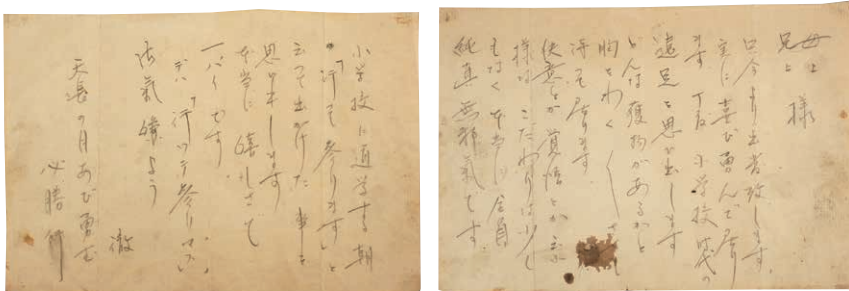 母上
兄上 様
只今より出発致します。
実に喜び勇んで居り
ます 丁度小学校時代の
遠足を思ひ出します
どんな獲物があるかと
胸をわく〳〵させて
居ります。
決意とか覚悟とか云ふ
様な こだわりは少しも
なく 本当に全員
純真無邪気です。
小学校に通学する朝
の「行って参ります」と
云って出かけた事を
思ひ出します
本当に嬉しさで
一パイです。
デハ「行ッテ参リマス」
御気嫌よう
徹
天長の月あび勇む
必勝行